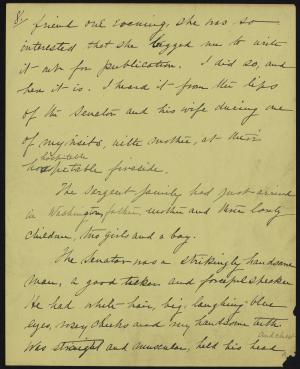 8/
friend one evening, she was so
interested that she begged me to write
it out for publication. I did so, and
here it is. I heard it from the lips
of the Senator and his wife during one
of my visits, with mother, at their
hospitable
hospitable fireside.
The Sargent family had just arrived
in Washington, father, mother and three lovely
children, two girls and a boy.
The Senator was a strikingly handsome
man, a good talker and forceful speaker
He had white hair, big, laughing blue
eyes, rosy cheeks and very handsome teeth
Was straight and muscular, held his head